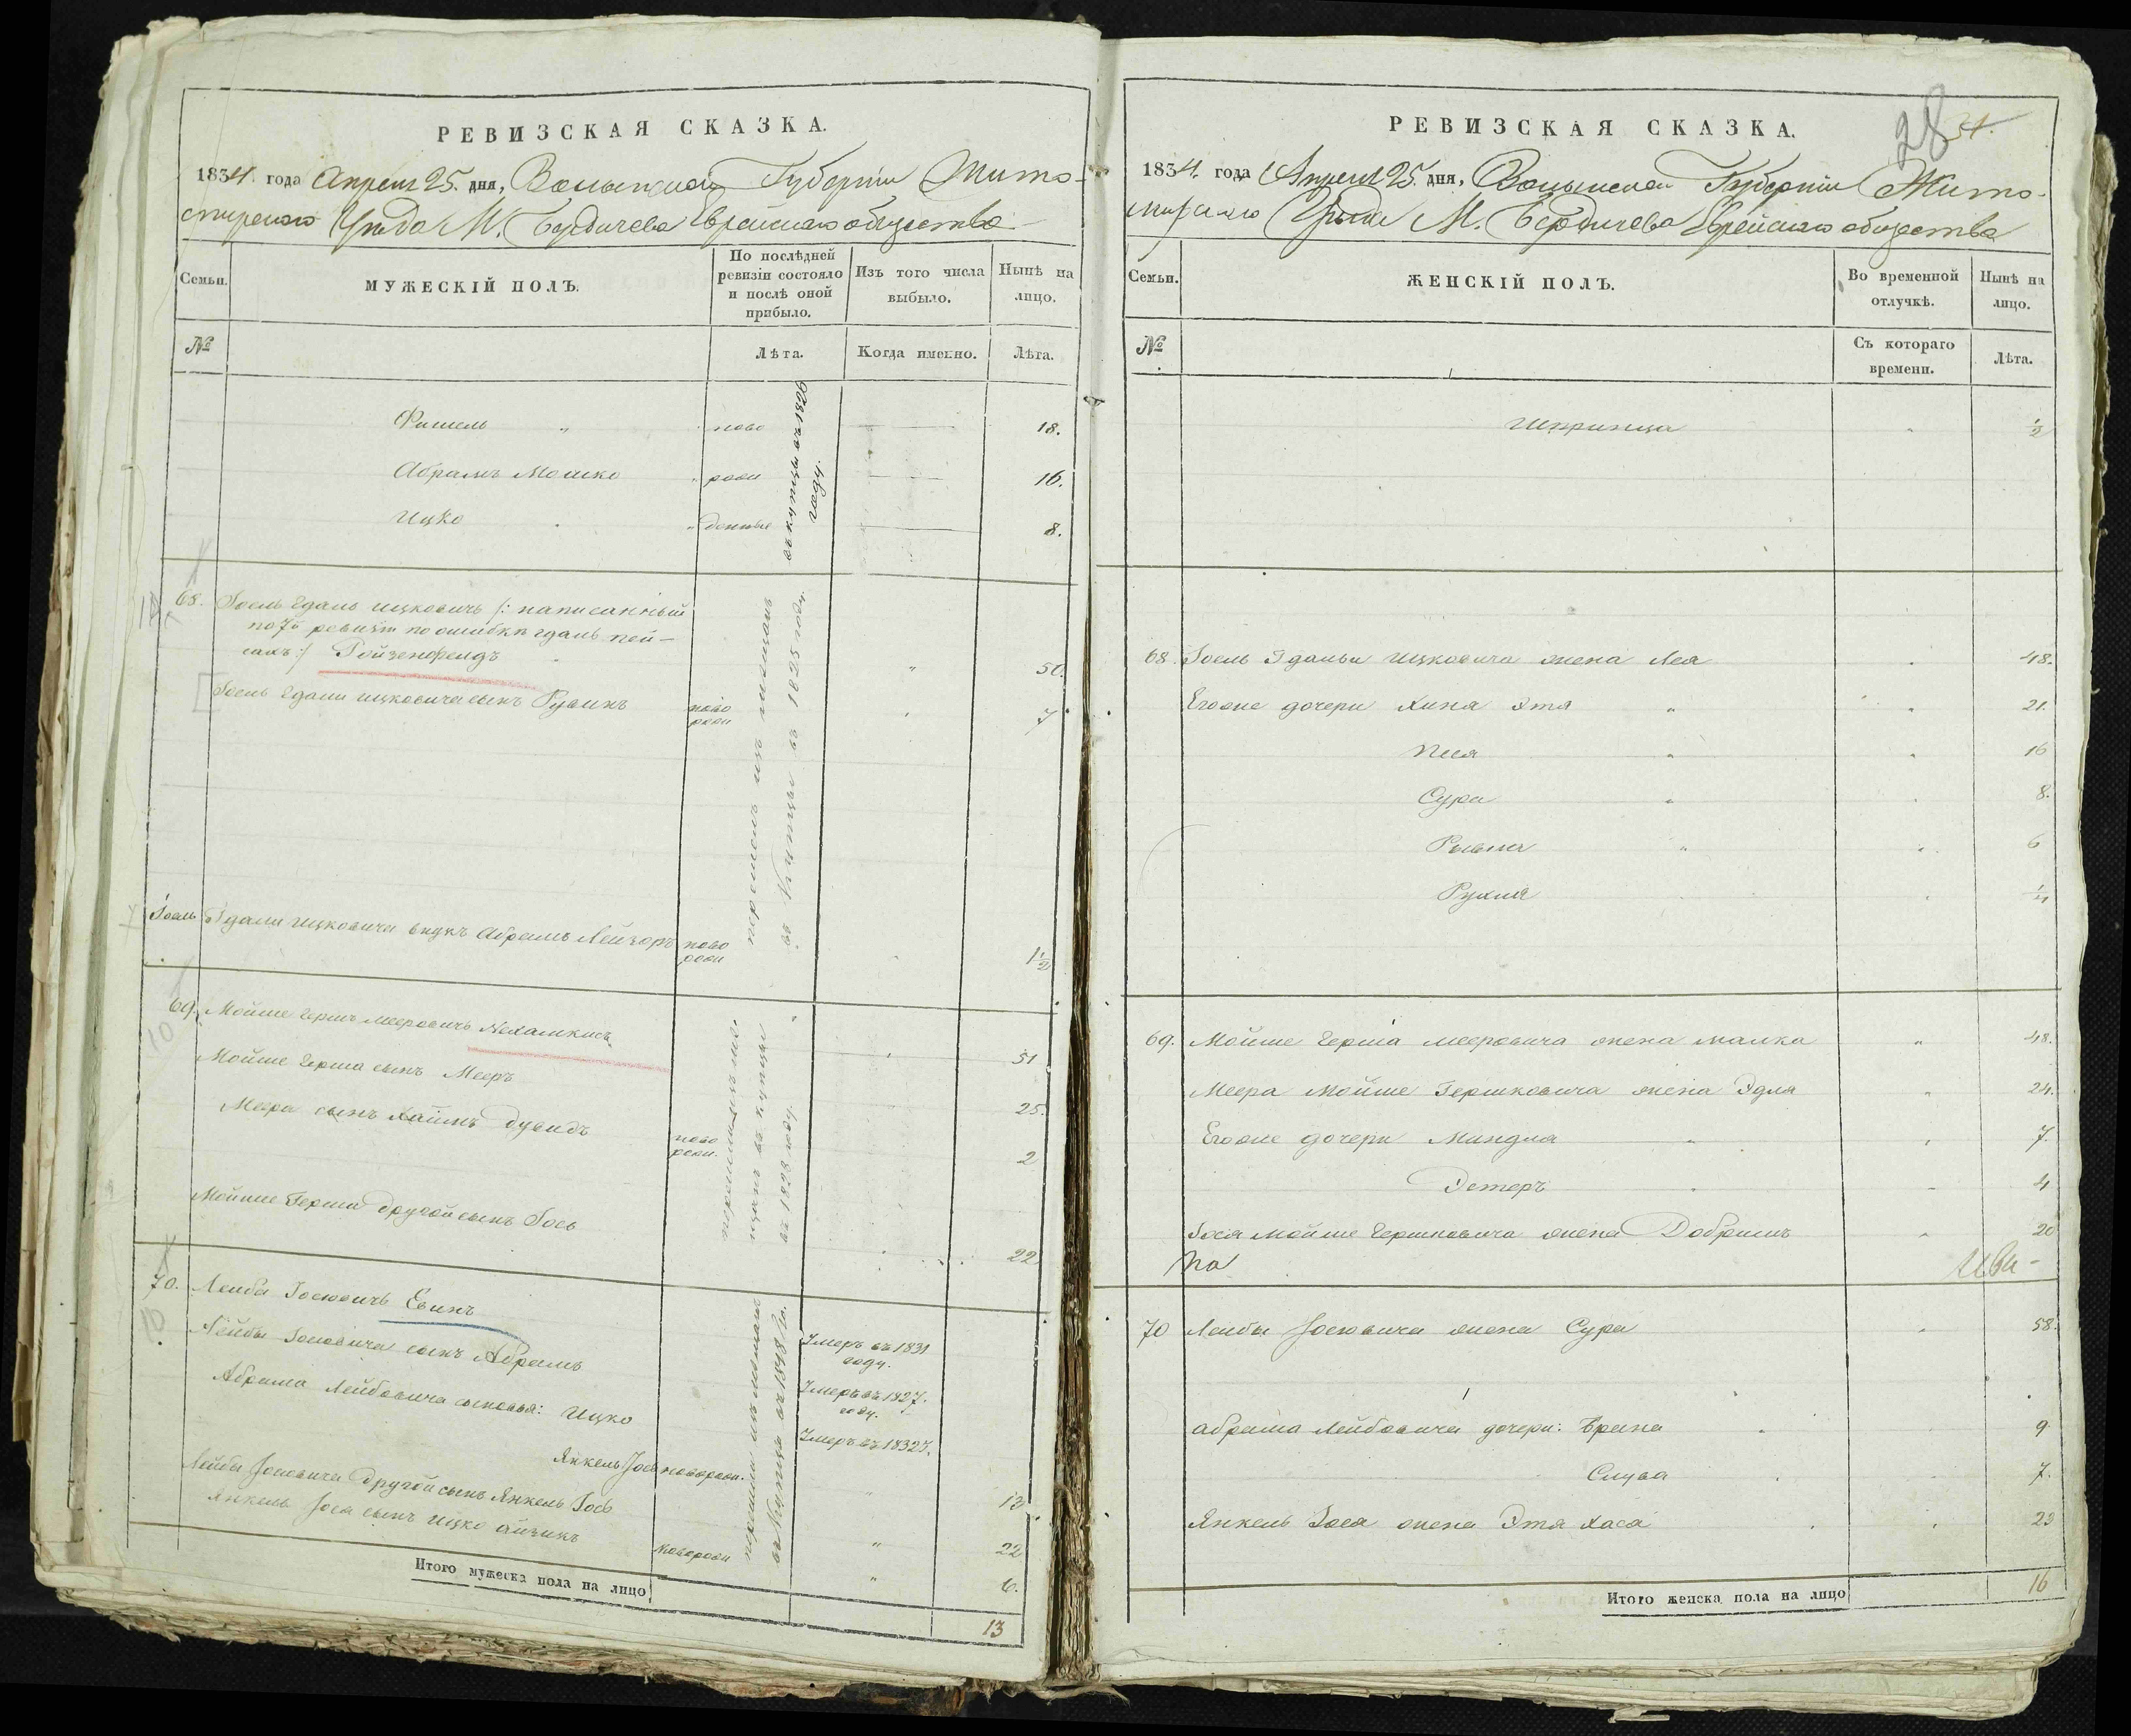 РЕВИЗСКАЯ СКАЗКА.
1834. года Апреля 25. дня, Волынской Губернiи Жито-
мирского Уѣзда М. Бердичева Еврейского общества
Семьи.
МУЖЕСКІЙ ПОЛЪ.
По послѣдней ревизіи состояло и послѣ оной прибыло.
Изъ того числа выбыло.
Нынѣ на лицо.
№
Лѣта.
Когда именно.
Лѣта.
Фишель " ново 18.
Абрамъ Мошко " рожд 16.
Ицко " денные 8.
въ купцы въ 1826 году.
68. Іоель Здаль Ицковичъ /: написанный
по 7й ревизіи по ошибкѣ Здаль Пей-
сахъ :/ Ройзенфельдъ " 50.
Іоель Здали Ицковича сынъ Рувинъ ново рожд " 7.
Іоель Здали Ицковича внукъ Абрамъ Лейзоръ ново рожд " 1 1/2
перешолъ изъ мещанъ
въ Купцы въ 1825 году.
69. Мойше Гершъ Мееровичъ Нехамкисъ " 51
Мойше Герша сынъ Мееръ 25.
Меера сынъ Хаимъ Дувидъ ново рожд. 2
Мойше Герша другой сынъ Іось 22
въ 1828 году.
70. Лейба Іосіовичъ Евинъ Умеръ въ 1831 году.
Лейбы Іосіовича сынъ Абрамъ Умеръ въ 1827. году.
Абрама Лейбовича сыновья: Ицко Умеръ въ 1832г.
Янкель Іось новорожд. " 13
Лейбы Іосіовича другой сынъ Янкель Іось " 22
Янкель Іося сынъ Ицко Айзикъ новорожд " 6.
Итого мужеска пола на лицо 13
28
РЕВИЗСКАЯ СКАЗКА.
1834. года Апреля 25. дня, Волынской Губернiи Жито-
мирского Уѣзда М. Бердичева Еврейского общества
Семьи.
ЖЕНСКІЙ ПОЛЪ.
Во временной отлучкѣ.
Нынѣ на лицо.
№
Съ котораго времени.
Лѣта.
Шпринца " 1/2
68. Іоель Здальи Ицковича жена Лея " 48.
Егоже дочери Хина Этя " " 21.
Песя " " 16
Сура " " 8.
Рывка " " 6
Рухля 1/4
69. Мойше Герша Мееровича жена Малка " 48.
Меера Мойше Гершковича жена Эдля " 24.
Егоже дочери Миндля " " 7.
Эстеръ " " 4
Іося Мойше Гершковича жена Добришъ " 20
70 Лейбы Іосіовича жена Сура " 58.
Абрама Лейбовича дочери: Брана " 9
Слува 7.
Янкель Іося жена Этя Хася " 23
Итого женска пола на лицо 16